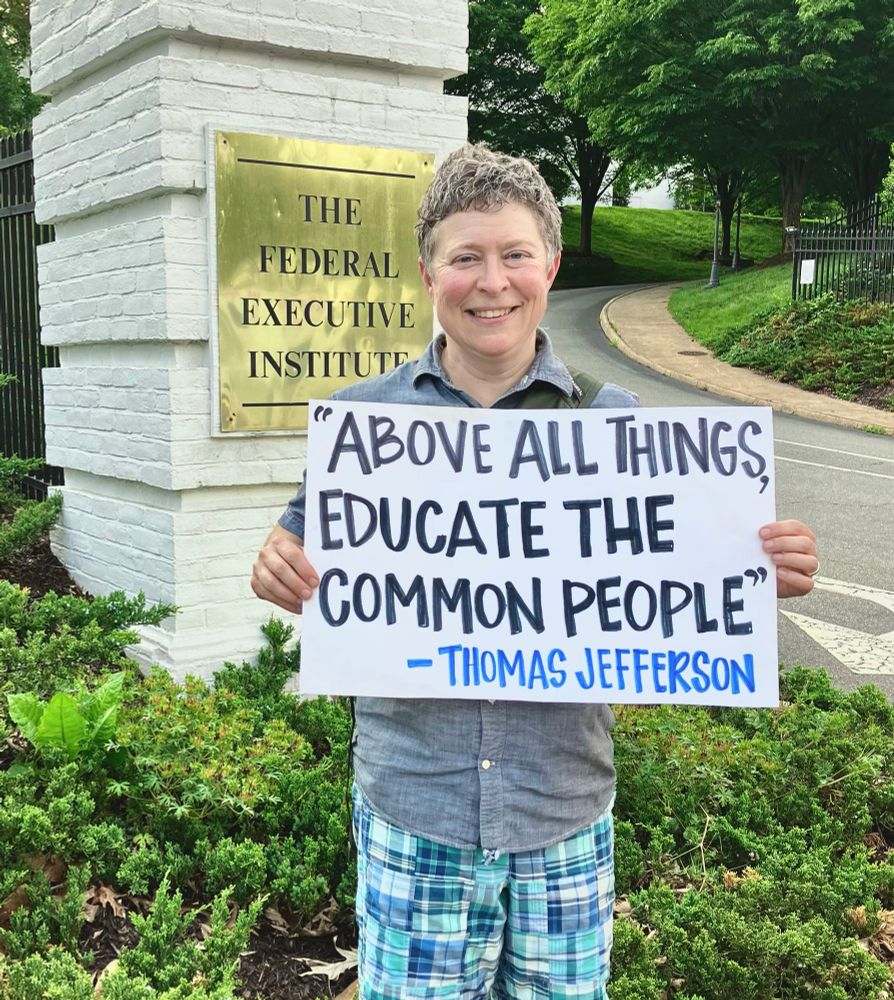 THE
FEDERAL
EXECUTIVE
INSTITUTE
"ABOVE ALL THINGS,
EDUCATE THE
COMMON PEOPLE"
- THOMAS JEFFERSON